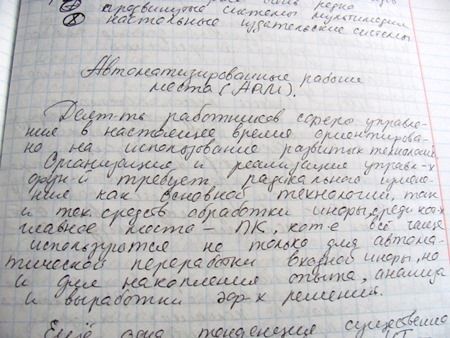 продвинутые системы мультимедиа
настольные издательские системы
Автоматизированные рабочие
места (АРМ).
Деят-ть работников сферы управле-
ние в настоящее время ориентирова-
но на использование развитых технологий.
Организация и реализация управл-х
функ-й требует радикального измене-
ния как основной технологии, так
и тех. средств обработки инф-ры, среди кот-х
главное место - ПК, кот-е всё чаще
используются не только для автома-
тической переработки входной инф-ры, но
и для накопления опыта, анализа
и выработки эф-х решений.
Ещё одна тенденция существенно